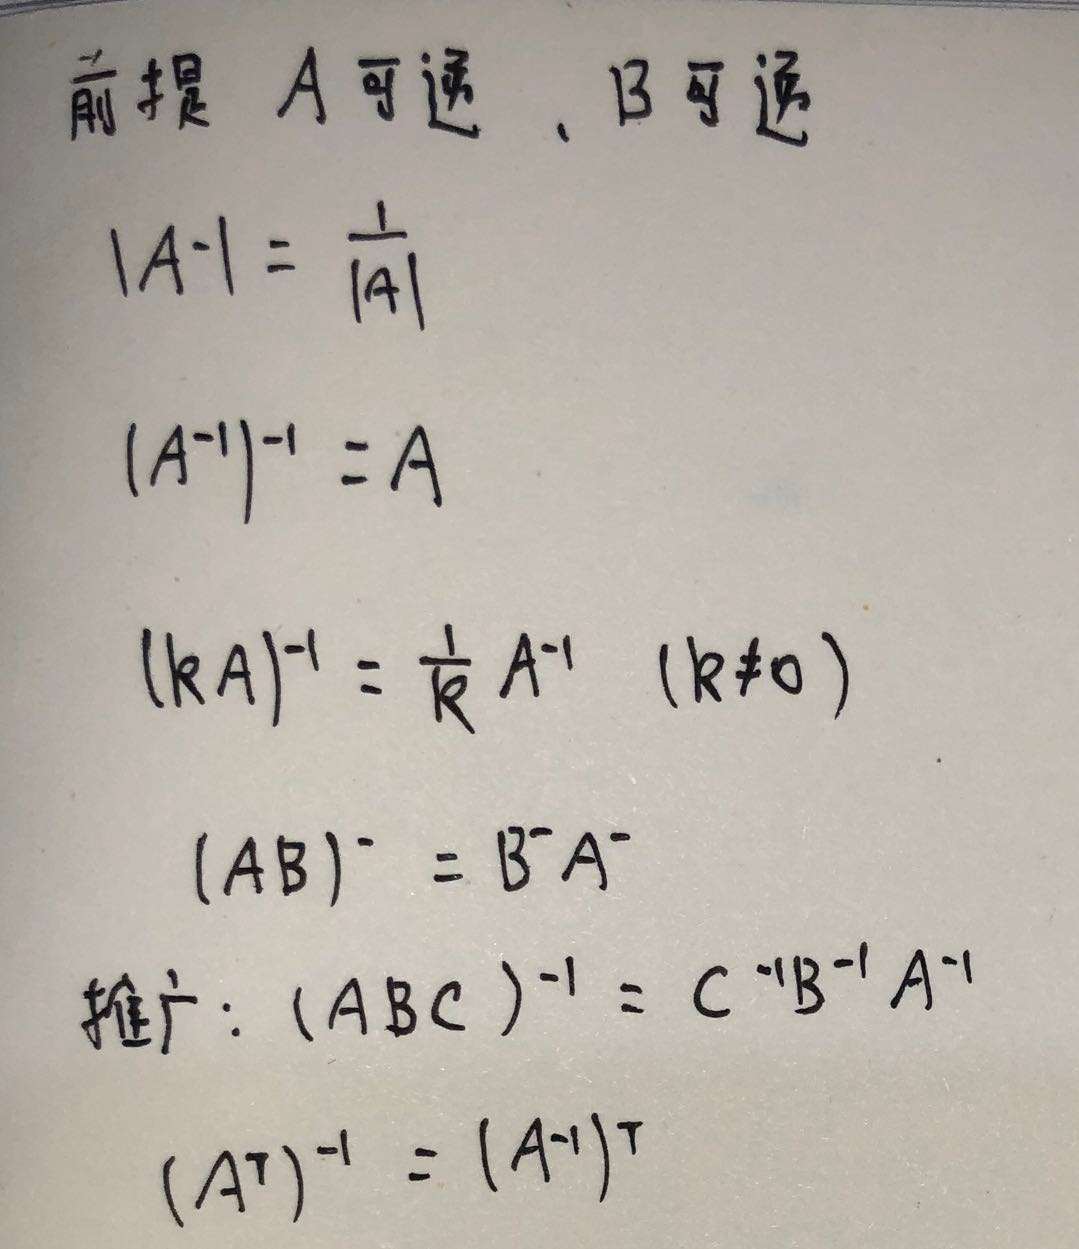 前提 A可逆、B可逆
|A⁻| = 1/|A|
(A⁻¹)⁻¹ = A
(kA)⁻¹ = 1/k A⁻¹ (k≠0)
(AB)⁻ = B⁻A⁻
推广：(ABC)⁻¹ = C⁻¹B⁻¹A⁻¹
(Aᵀ)⁻¹ = (A⁻¹)ᵀ